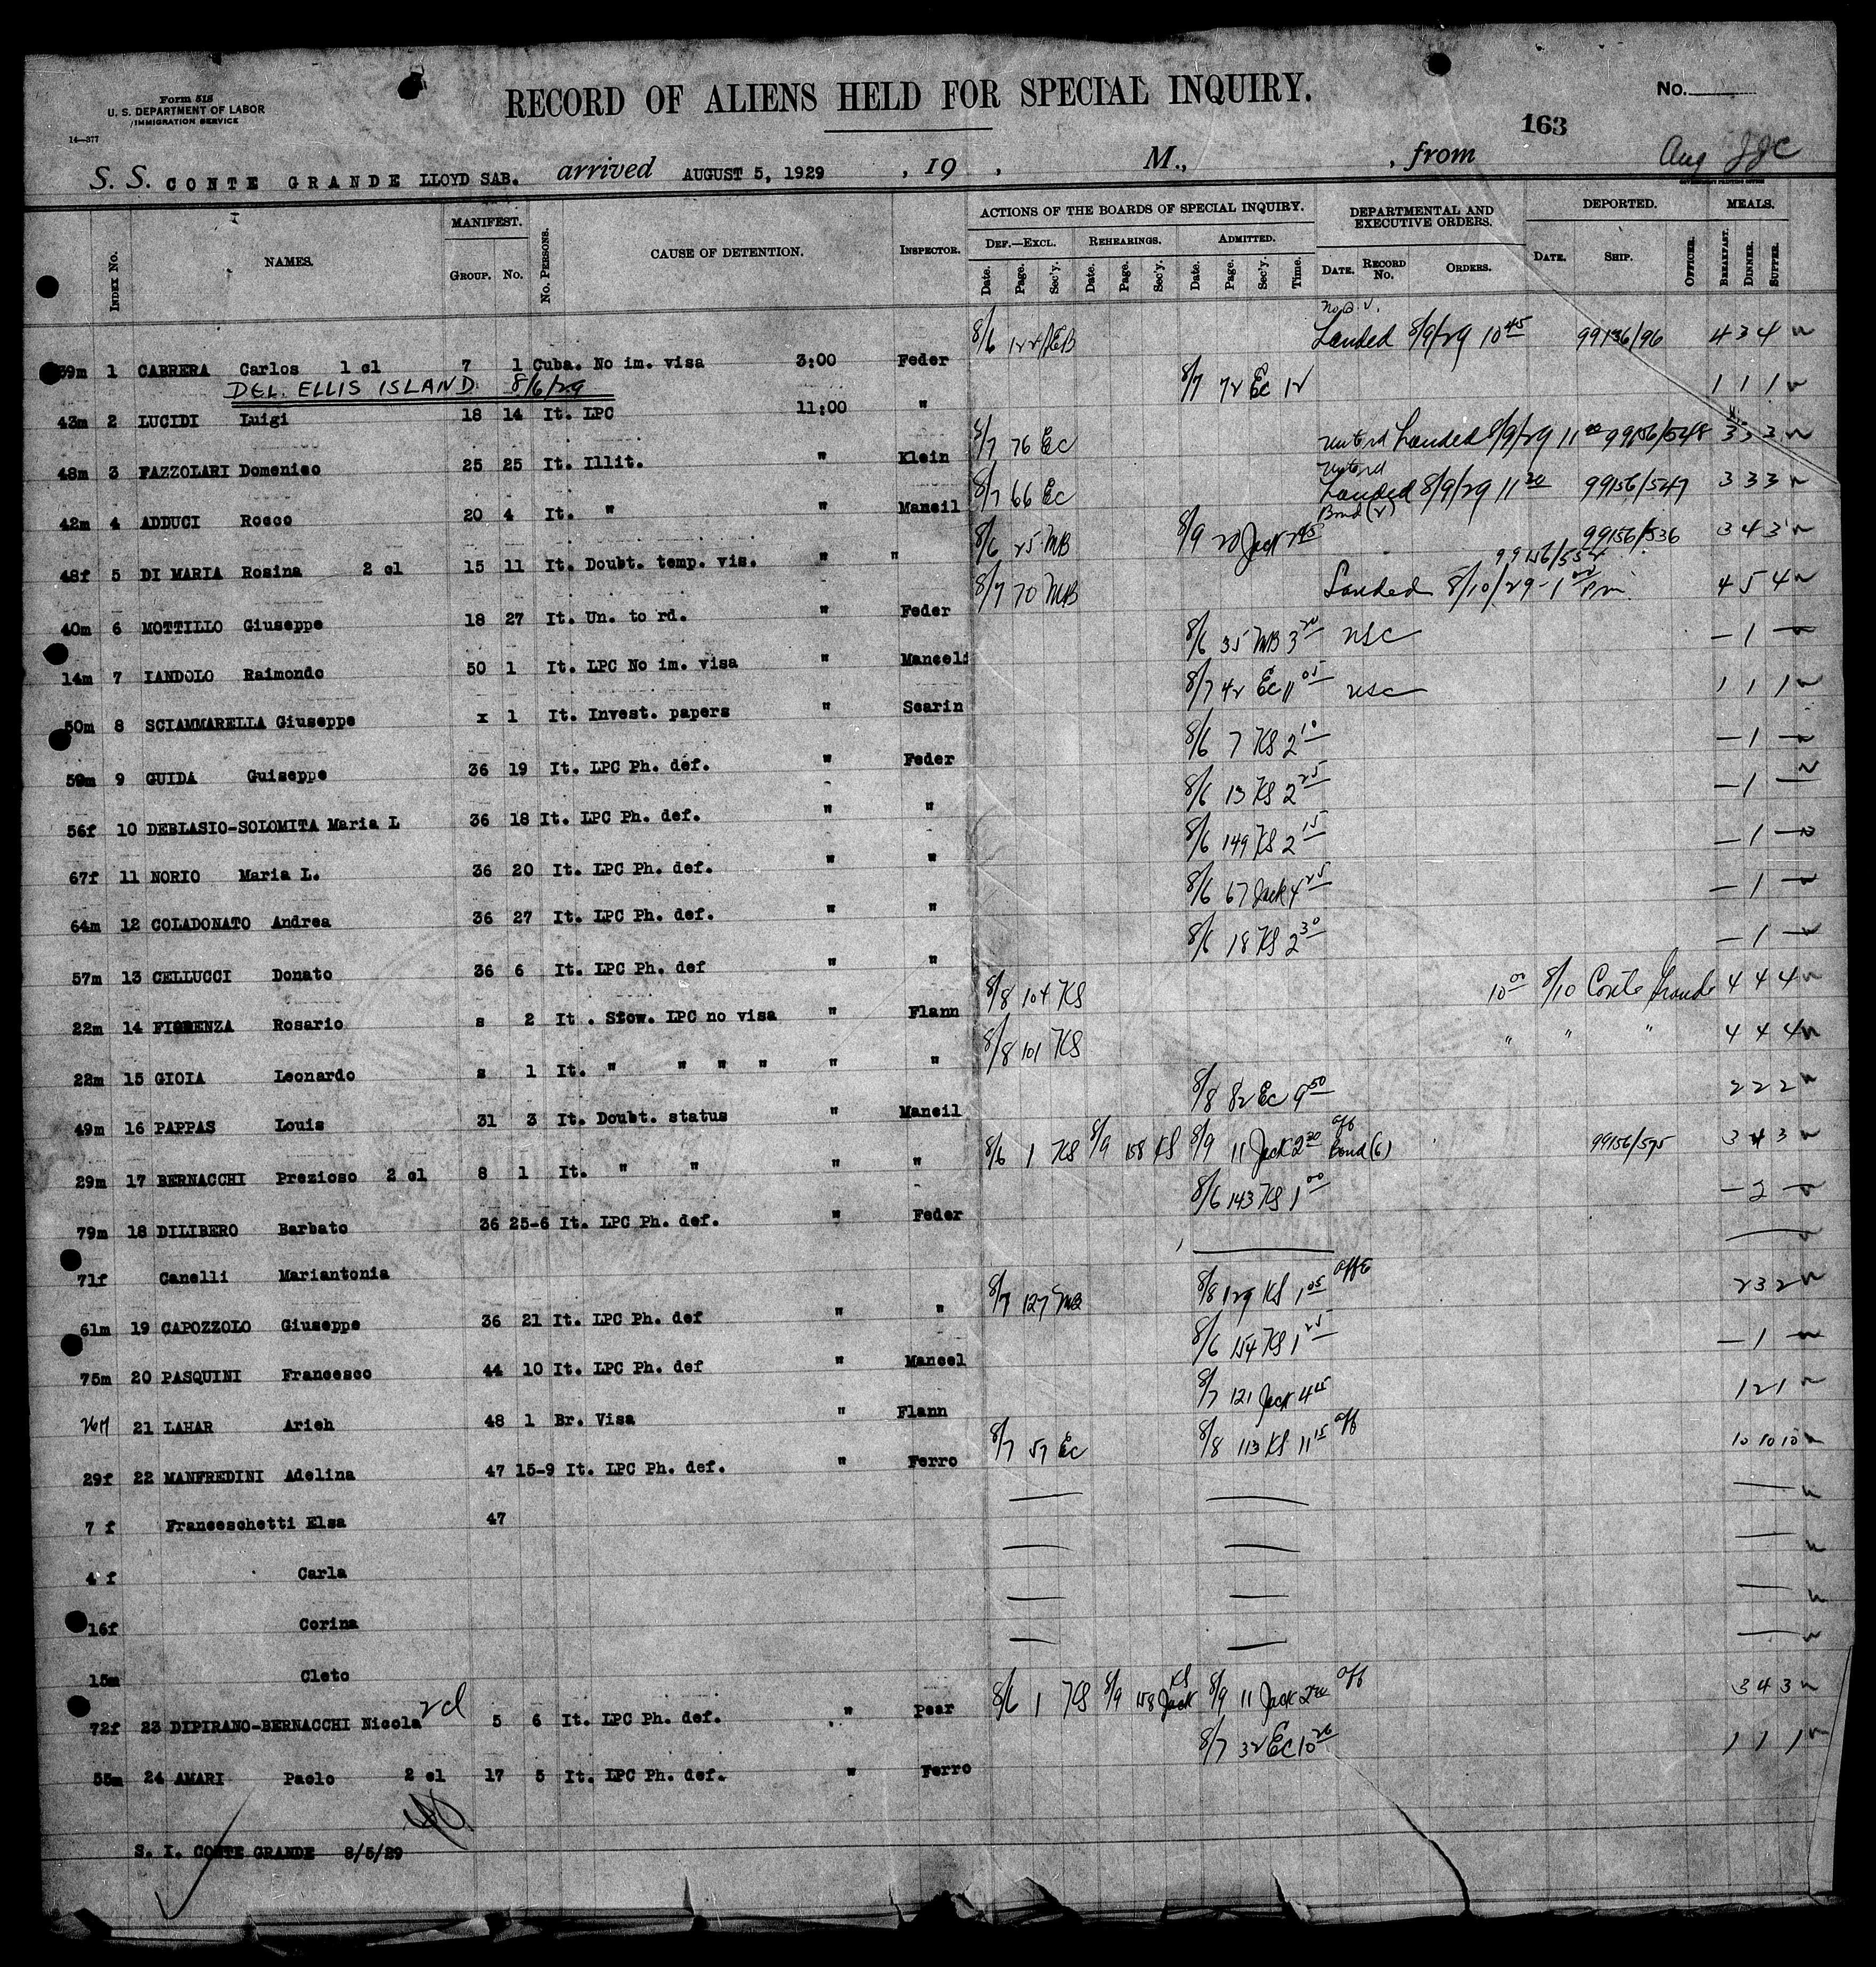 Form 518
U. S. DEPARTMENT OF LABOR
IMMIGRATION SERVICE
14—377
RECORD OF ALIENS HELD FOR SPECIAL INQUIRY.
No.
163
S. S. CONTE GRANDE LLOYD SAB. arrived AUGUST 5, 1929 , 19 , M., , from Aug
GOVERNMENT PRINTING OFFICE
INDEX No. NAMES. MANIFEST. GROUP. No. No. PERSONS. CAUSE OF DETENTION. INSPECTOR. ACTIONS OF THE BOARDS OF SPECIAL INQUIRY. DEF.—EXCL. Date. Page. Sec'y. REHEARINGS. Date. Page. Sec'y. ADMITTED. Date. Page. Sec'y. Time. DEPARTMENTAL AND EXECUTIVE ORDERS. DATE. RECORD No. ORDERS. DEPORTED. DATE. SHIP. OFFICER. MEALS. BREAKFAST. DINNER. SUPPER.
39m 1 CABRERA Carlos 1 cl 7 1 Cuba. No im. visa 3:00 Feder 8/6 Landed 8/9/29 10 45 99136/96 4 3 4
DEL. ELLIS ISLAND 8/6/29
43m 2 LUCIDI Luigi 18 14 It. LPC 11:00 " 8/7 72 EC 12 1 1 1
48m 3 FAZZOLARI Domenico 25 25 It. Illit. " Klein 8/7 76 EC Landed 8/9/29 11 00 99156/548 3 3 3
42m 4 ADDUCI Rocco 20 4 It. " " Mancil 8/7 66 EC Landed 8/9/29 11 20 99156/547 3 3 3
48f 5 DI MARIA Rosina 2 cl 15 11 It. Doubt. temp. vis. " " 8/6 25 MB 8/9 20 Jack 2 45 Bond (2) 99156/536 3 4 3
40m 6 MOTTILLO Giuseppe 18 27 It. Un. to rd. " Feder 8/7 70 MB Landed 8/10/29 - 1 00 Pm 4 5 4
14m 7 IANDOLO Raimondo 50 1 It. LPC No im. visa " Manceli 8/6 35 MB 3 20 USC — 1 —
50m 8 SCIAMMARELLA Giuseppe x 1 It. Invest. papers " Scarin 8/7 42 EC 11 05 USC 1 1 1
59m 9 GUIDA Guiseppe 36 19 It. LPC Ph. def. " Feder 8/6 7 KS 2 10 — 1 —
56f 10 DEBLASIO-SOLOMITA Maria L 36 18 It. LPC Ph. def. " " 8/6 13 KS 2 25 — 1 —
67f 11 NORIO Maria L. 36 20 It. LPC Ph. def. " " 8/6 149 KS 2 15 — 1 —
64m 12 COLADONATO Andrea 36 27 It. LPC Ph. def. " " 8/6 67 Jack 4 25 — 1 —
57m 13 CELLUCCI Donato 36 6 It. LPC Ph. def " " 8/6 18 KS 2 30 — 1 —
22m 14 FIORENZA Rosario s 2 It . Stow. LPC no visa " Flann 8/8 104 KS 10 00 8/10 Conte Grande 4 4 4
22m 15 GIOIA Leonardo s 1 It. " " " " " " 8/8 101 KS " " " 4 4 4
49m 16 PAPPAS Louis 31 3 It. Doubt. status " Mancil 8/8 82 EC 9 50 2 2 2
29m 17 BERNACCHI Prezioso 2 cl 8 1 It. " " " " 8/6 1 KS 8/9 158 KS 8/9 11 Jack 2 30 off Bond (6) 99156/575 3 4 3
79m 18 DILIBERO Barbato 36 25-6 It. LPC Ph. def. " Feder 8/6 143 KS 1 00 — 2 —
71f Canelli Mariantonia
61m 19 CAPOZZOLO Giuseppe 36 21 It. LPC Ph. def " " 8/7 127 MB 8/8 129 KS 1 05 2 3 2
75m 20 PASQUINI Francesco 44 10 It. LPC Ph. def " Mancel 8/6 154 KS 1 25 — 1 —
26m 21 LAHAR Arieh 48 1 Br. Visa " Flann 8/7 121 Jack 4 45 1 2 1
29f 22 MANFREDINI Adelina 47 15-9 It. LPC Ph. def. " Ferro 8/7 57 EC 8/8 113 KS 11 15 off 10 10 10
7 f Franceschetti Elsa 47
4 f Carla
16f Corina
15m Cleto
72f 23 DIPIRANO-BERNACCHI Nicola 2cl 5 6 It. LPC Ph. def. " Pear 8/6 1 KS 8/9 158 KS Jack 8/9 11 Jack off 3 4 3
55m 24 AMARI Paolo 2 cl 17 5 It. LPC Ph. def. " Ferro 8/7 32 EC 10 20 1 1 1
S. I. CONTE GRANDE 8/5/29